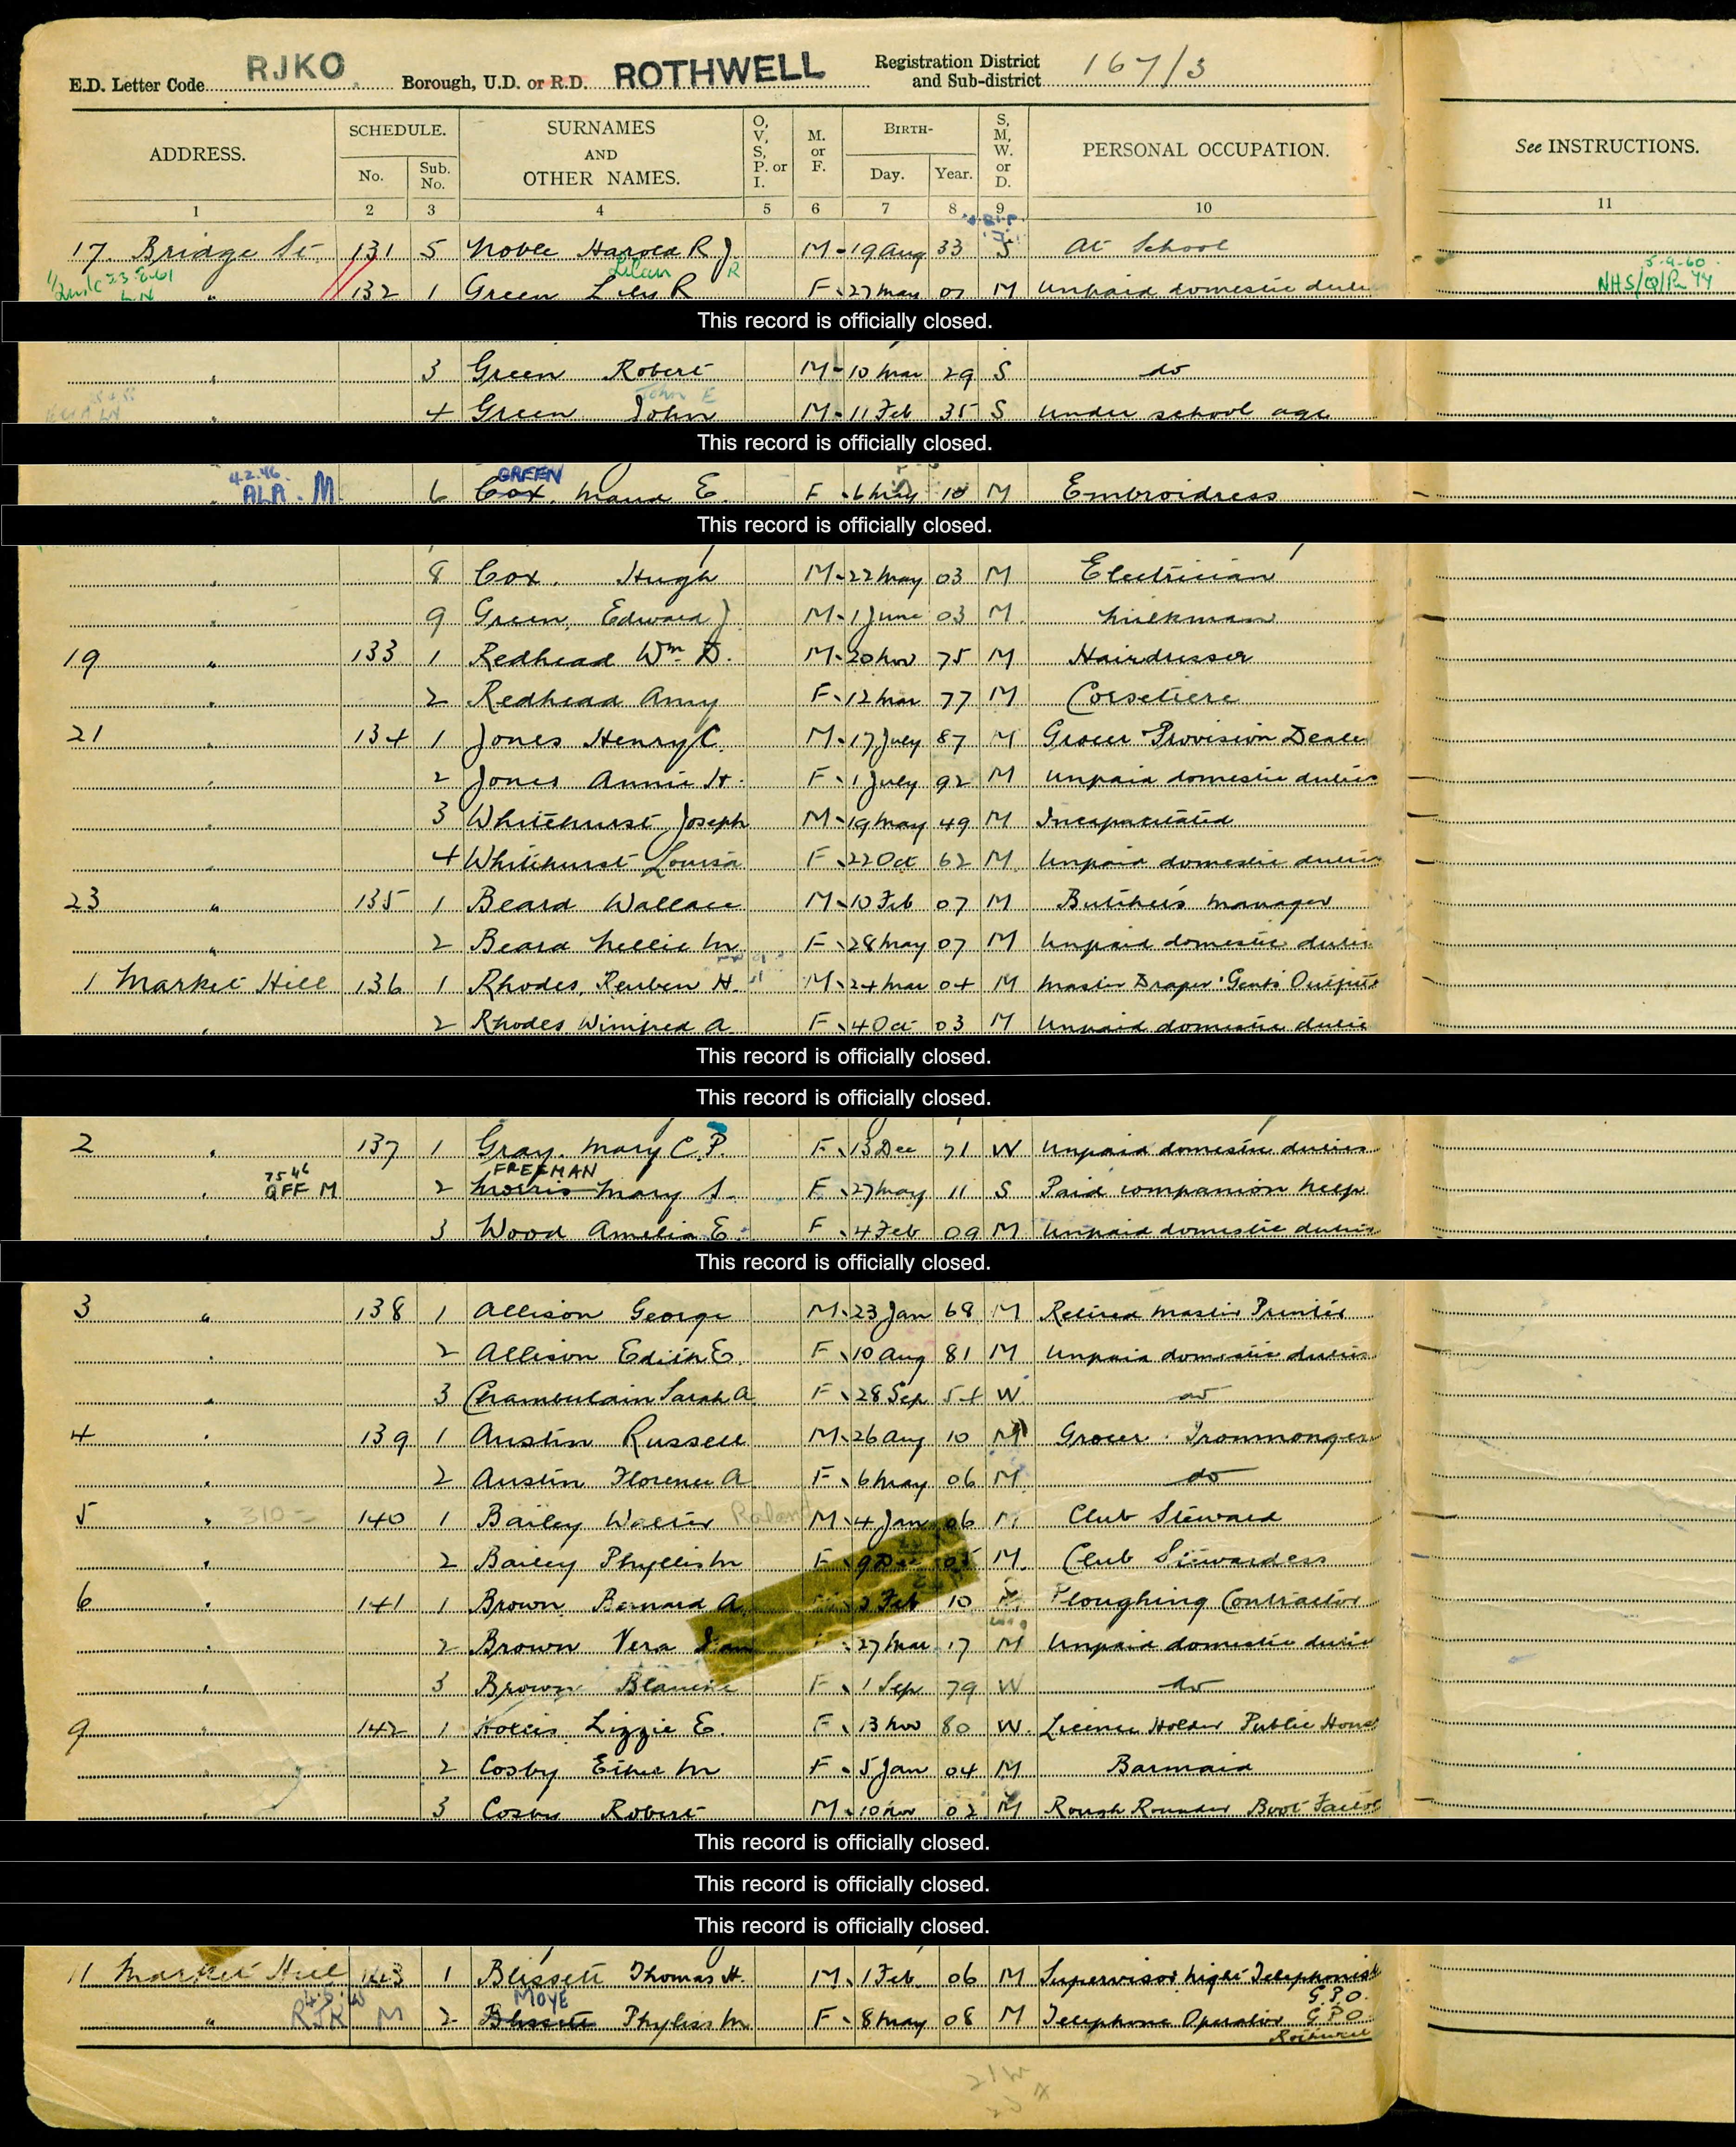 E.D. Letter Code RJKO Borough, U.D. or R.D. ROTHWELL Registration District and Sub-district 167/3
ADDRESS. SCHEDULE. No. Sub. No. SURNAMES AND OTHER NAMES. O, V, S, P. or I. M. or F. BIRTH- Day. Year. S, M, W. or D. PERSONAL OCCUPATION. See INSTRUCTIONS.
1 2 3 4 5 6 7 8 9 10 11
17 Bridge St. 131 5 Noble Harold R J M 19 Aug 33 S At School
Lilian R 5.9.60
" 132 1 Green Lily R F 27 May 07 M Unpaid domestic duties NHS/Q/Pn 44
This record is officially closed.
" 3 Green Robert M 10 Mar 29 S do
John E
" 4 Green John M 11 Feb 35 S Under school age
This record is officially closed.
4.2.46. GREEN
" ALA. M 6 Cox Maud E. F 6 May 10 M Embroidress
This record is officially closed.
" 8 Cox. Hugh M 22 May 03 M Electrician
" 9 Green, Edward J. M 1 June 03 M. Milkman
19 " 133 1 Redhead Wm D. M 20 Nov 75 M Hairdresser
" 2 Redhead Amy F 12 Mar 77 M Corsetiere
21 " 134 1 Jones Henry C. M 17 July 87 M Grocer Provision Dealer
" 2 Jones Annie H. F 1 July 92 M Unpaid domestic duties
" 3 Whitehurst Joseph M 19 May 49 M Incapacitated
" 4 Whitehurst Louisa F 22 Oct 62 M Unpaid domestic duties
23 " 135 1 Beard Wallace M 10 Feb 07 M Butcher's Manager
" 2 Beard Nellie M F 28 May 07 M Unpaid domestic duties
1 Market Hill 136 1 Rhodes, Reuben H. M 24 Mar 04 M Master Draper Gents Outfitter
" 2 Rhodes Winifred A F 4 Oct 03 M Unpaid domestic duties
This record is officially closed.
This record is officially closed.
2 " 137 1 Gray Mary C.P. F 13 Dec 71 W Unpaid domestic duties
FREEMAN
" QFF M 2 Morris Mary S. F 27 May 11 S Paid companion help
" 3 Wood Amelia E. F 4 Feb 09 M Unpaid domestic duties
This record is officially closed.
3 " 138 1 Allison George M 23 Jan 68 M Retired Master Printer
" 2 Allison Edith E. F 10 Aug 81 M Unpaid domestic duties
" 3 Chamberlain Sarah A. F 28 Sep 54 W do
4 " 139 1 Austin Russell M 26 Aug 10 M Grocer Ironmonger
" 2 Austin Florence A F 6 May 06 M do
5 " 310 = 140 1 Bailey Walter M 4 Jan 06 M Club Steward
" 2 Bailey Phyllis M F 9 Dec 05 M. Club Stewardess
6 " 141 1 Brown Bernard A 3 Feb 10 Ploughing Contractor
" 2 Brown Vera 27 Mar 17 M Unpaid domestic duties
" 3 Brown Blanche F 1 Sep 79 W do
9 " 142 1 Hollis Lizzie E. F 13 Nov 80 W. Licence Holder Public House
" 2 Cosby Ethel M F 5 Jan 04 M Barmaid
" 3 Cosby Robert M 10 Nov 02 M Rough Rounder Boot Factory
This record is officially closed.
This record is officially closed.
This record is officially closed.
11 Market Hill 143 1 Blissett Thomas H. M 1 Feb 06 M Supervisor Night Telephonist G.P.O.
MOYE
" RJK M 2 Blissett Phyliss M F 8 May 08 M Telephone Operator G.P.O. Rothwell